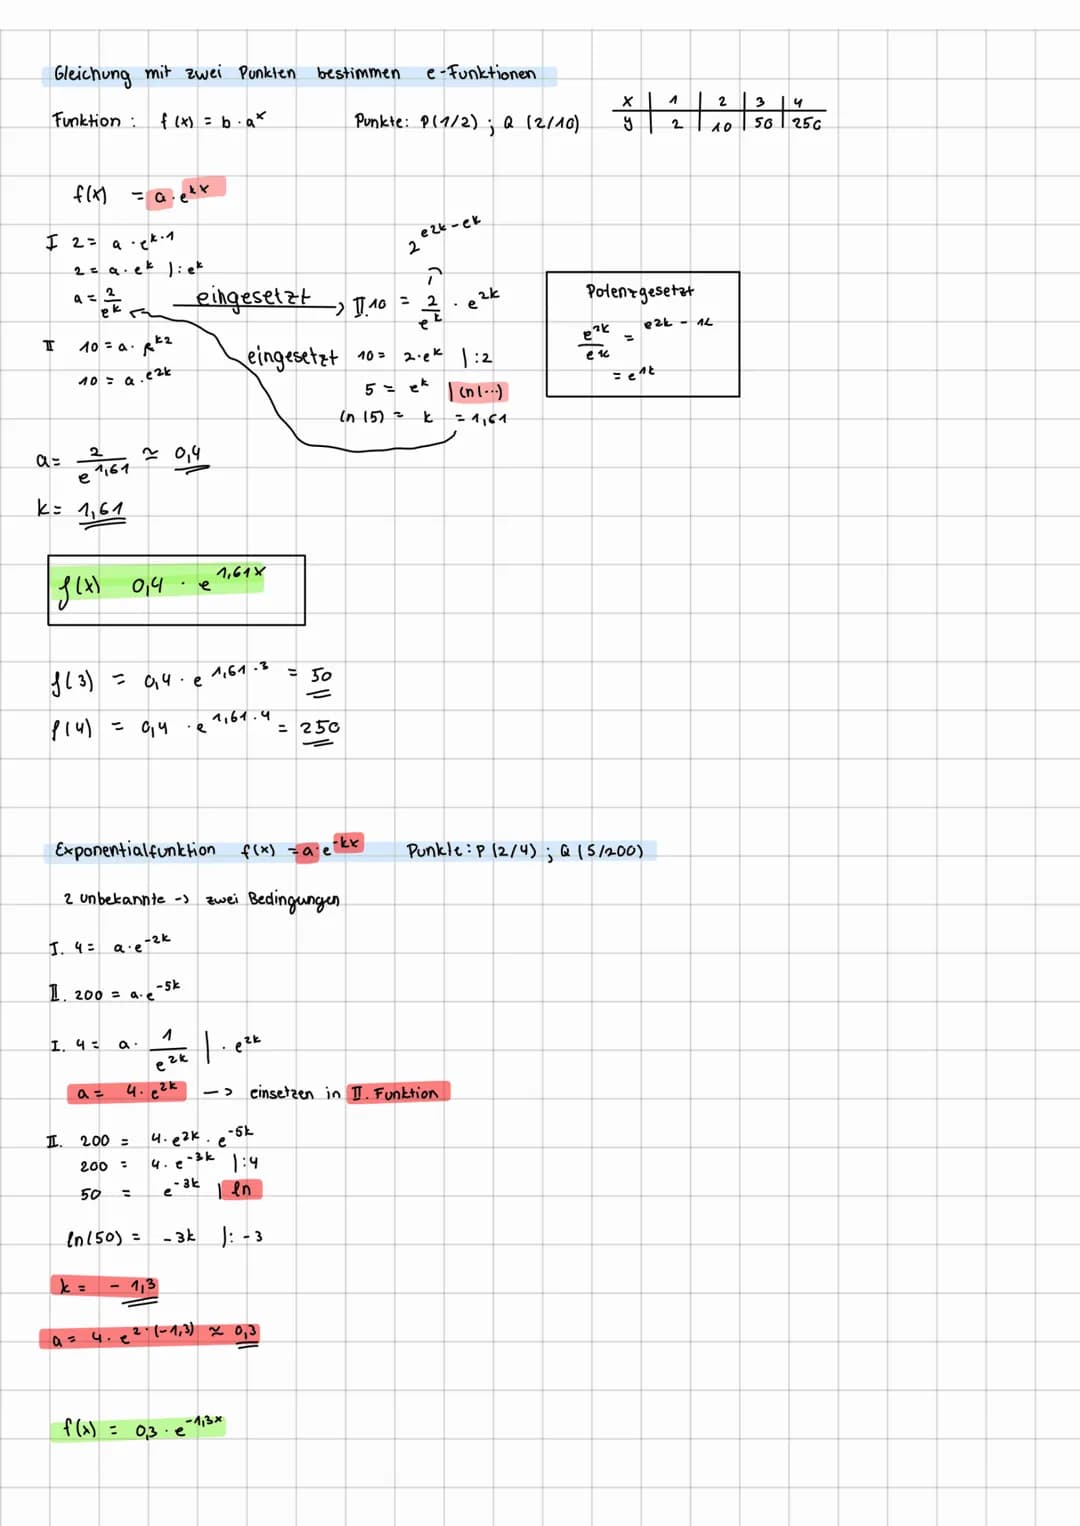 Gleichung mit zwei Punkten bestimmen e-Funktionen
Funktion : f(x) = b · a^x Punkte: P(1/2) ; Q (2/10)
x | 1 | 2 | 3 | 4
y | 2 | 10 | 50 | 250
f(x) = a · e^kx
I 2 = a · e^k·1
2 = a · e^k |: e^k
a = 2/e^k
eingesetzt
2^e2k-ek
II. 10 = 2/e^k · e^2k
II 10 = a · e^k2
10 = a · e^2k
eingesetzt 10 = 2·e^k | :2
5 = e^k | ln(...)
ln(5) = k = 1,61
Potenzgesetzt
e^2k/e^1k = e^2k - 1k
= e^1k
a = 2/e^1,61 ≈ 0,4
k = 1,61
f(x) 0,4 · e^1,61x
f(3) = 0,4 · e^1,61·3 = 50
f(4) = 0,4 · e^1,61·4 = 250
Exponentialfunktion f(x) = a·e^-kx Punkte: P (2/4) ; Q (5/200)
2 unbekannte -> zwei Bedingungen
I. 4 = a·e^-2k
II. 200 = a·e^-5k
I. 4 = a · 1/e^2k | · e^2k
a = 4 · e^2k -> einsetzen in II. Funktion
II. 200 = 4 · e^2k · e^-5k
200 = 4 · e^-3k |:4
50 = e^-3k | ln
ln(50) = -3k |: -3
k = - 1,3
a = 4 · e^2·(-1,3) ≈ 0,3
f(x) = 0,3 · e^-1,3x